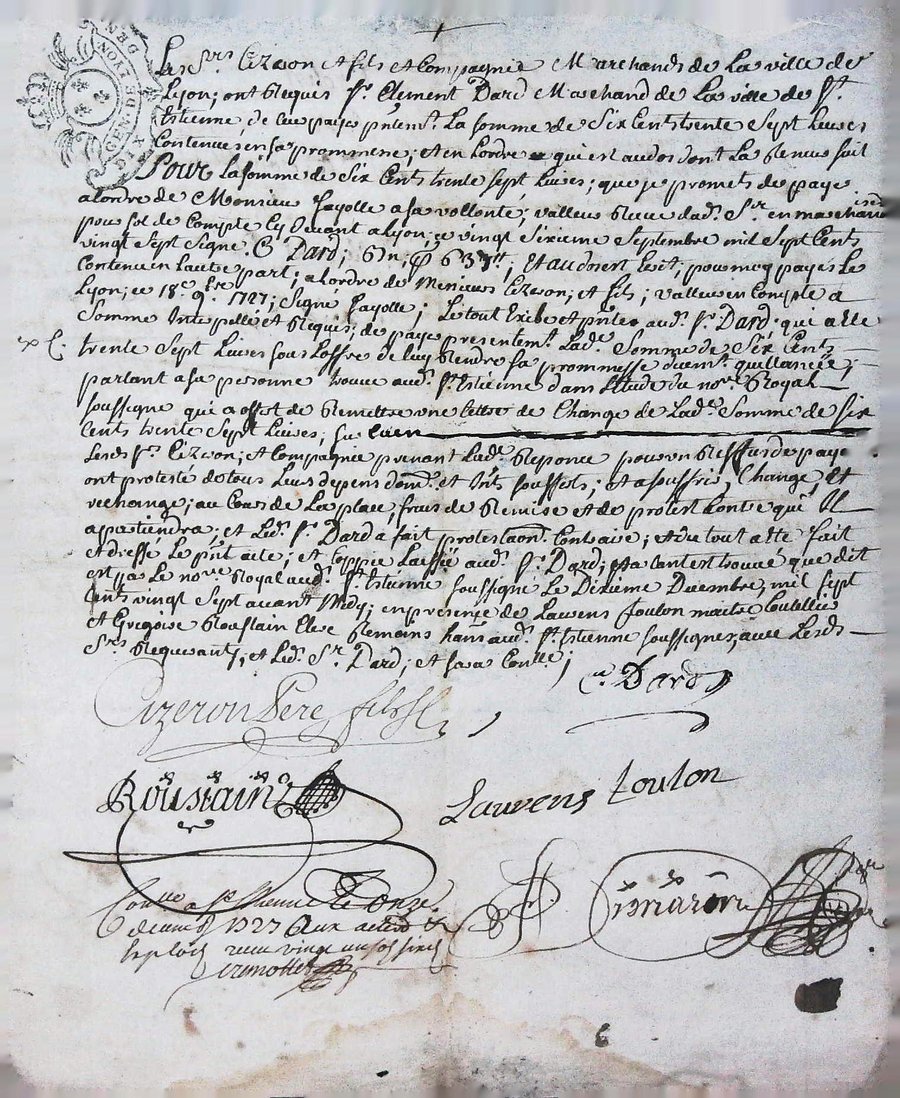 GEN. DE LYON DIX DEN
Les Srs Cizeron et fils et Compagnie Marchands de La ville de
Lyon; ont Requis Sr. Clement Dard Marchand de La ville de St.
Estienne, de luy payer pntemt. La somme de Six Cents trente Sept Livres
Contenue en sa prommesse; et en Lordre qui est au dos dont La teneur suit
Pour La somme de Six Cents trente sept Livres; que je promets de payer
a lordre de Monsieur fayolle a sa vollonte; valleur Receue dud. Sr. en marchandises
pour sol de Compte Cy devant a Lyon; ce vingt Sixieme Septembre mil Sept Cents
vingt Sept Signe C Dard; 637 tt; Et au dos est Ecrit, pour moy payes Le
Contenu en Lautre part; a lordre de Messieurs Cizeron; et fils; valleur en Compte a
Lyon; ce 18e 9bre 1727; Signe fayolle; Le tout Exibe et aud. Sr. Dard qui a ete
Somme Interpelle et Requis; de payer presentemt. Lade. Somme de Six Cents
trente Sept Livres sous Loffre de Luy Rendre sa prommesse duemt. quittancée;
parlant a sa personne trouve aud. St. Estienne dans Letude du nore. Royal
soussigne qui a offert de Remettre une lettre de Change de Lade. Somme de six
Cents trente Sept Livres;
Lesds Srs Cizeron; et Compagnie prenant Lade. Reponce pour un Reffus de payer
ont protesté de tous Leurs depens dom. et Ints soufferts; et a souffrir, Change, et
rechange; au Cours de La place, frais de Remise et de protest Contre quil
apartiendra; et Led. Sr. Dard a fait protestaon. Contraire; et du tout a ete fait
et dresse Le pnt acte; et Coppie Laissée aud. Sr. Dard; que dit
est par Le nore Royal aud. St. Estienne soussigne Le Dixieme Decembre, mil sept
Cents vingt Sept avant Midy; en presence de Laurens Toulon maitre Coutellier
et Gregoire Roustain Clerc Remains hants aud. St. Estienne soussignes, avec Lesds
Srs Requerants, et Led. Sr. Dard; et sera Contlle;
Cizeron Pere fils
Ct. Dard
Roustain
Laurens Toulon
Contlle a St. Etienne Le Onze
decembre 1727
recu vingt un sols six ds